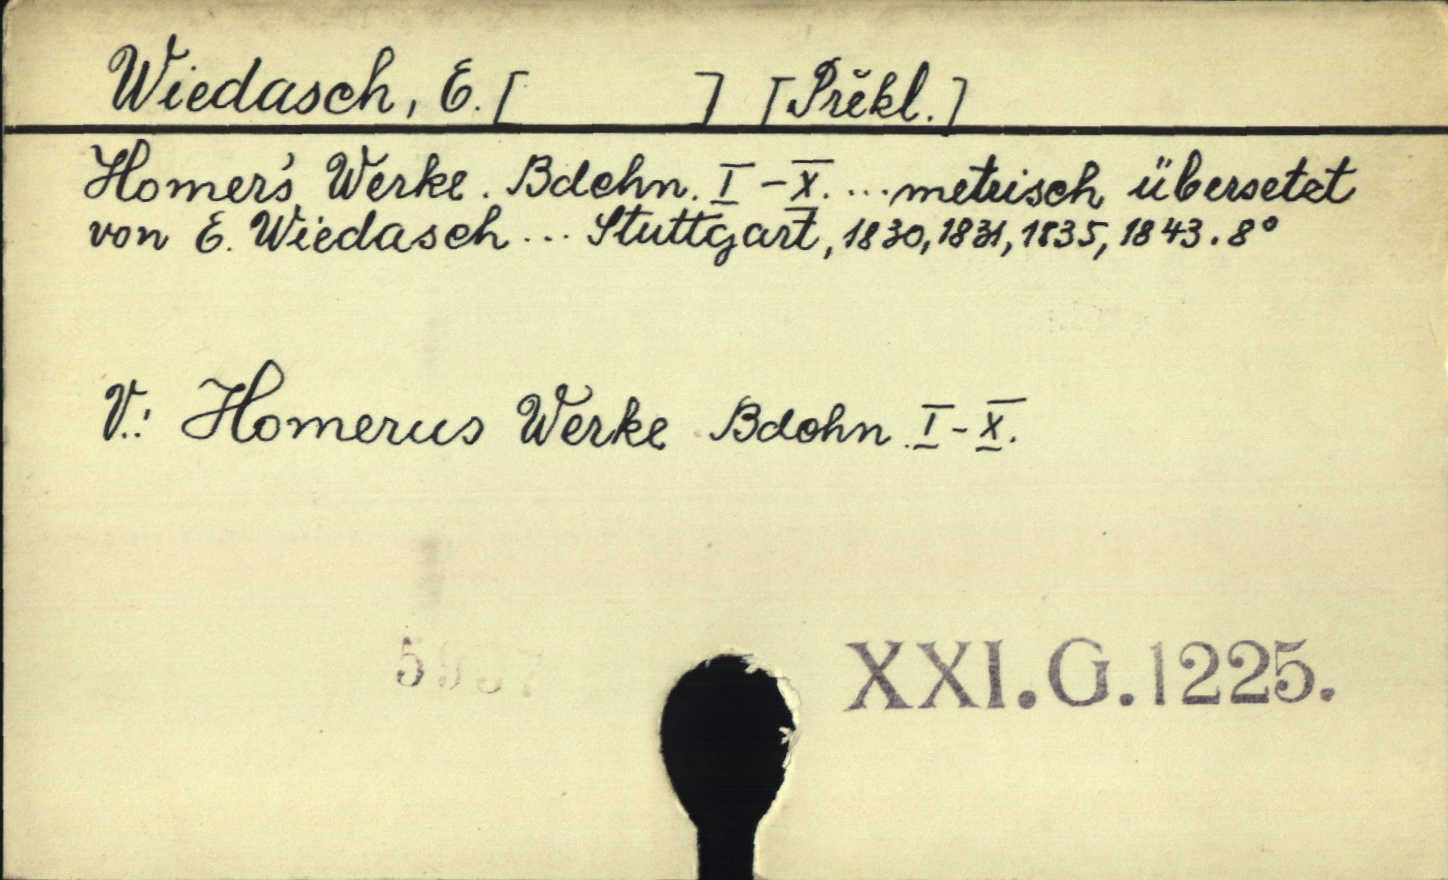 Wiedasch, E. [ ] [Překl.]
Homer's Werke. Bdchn. I-X. ... metrisch übersetzt
von E. Wiedasch ... Stuttgart, 1830, 1831, 1835, 1843. 8°
V.: Homerus Werke Bdchn. I-X.
XXI.G.1225.